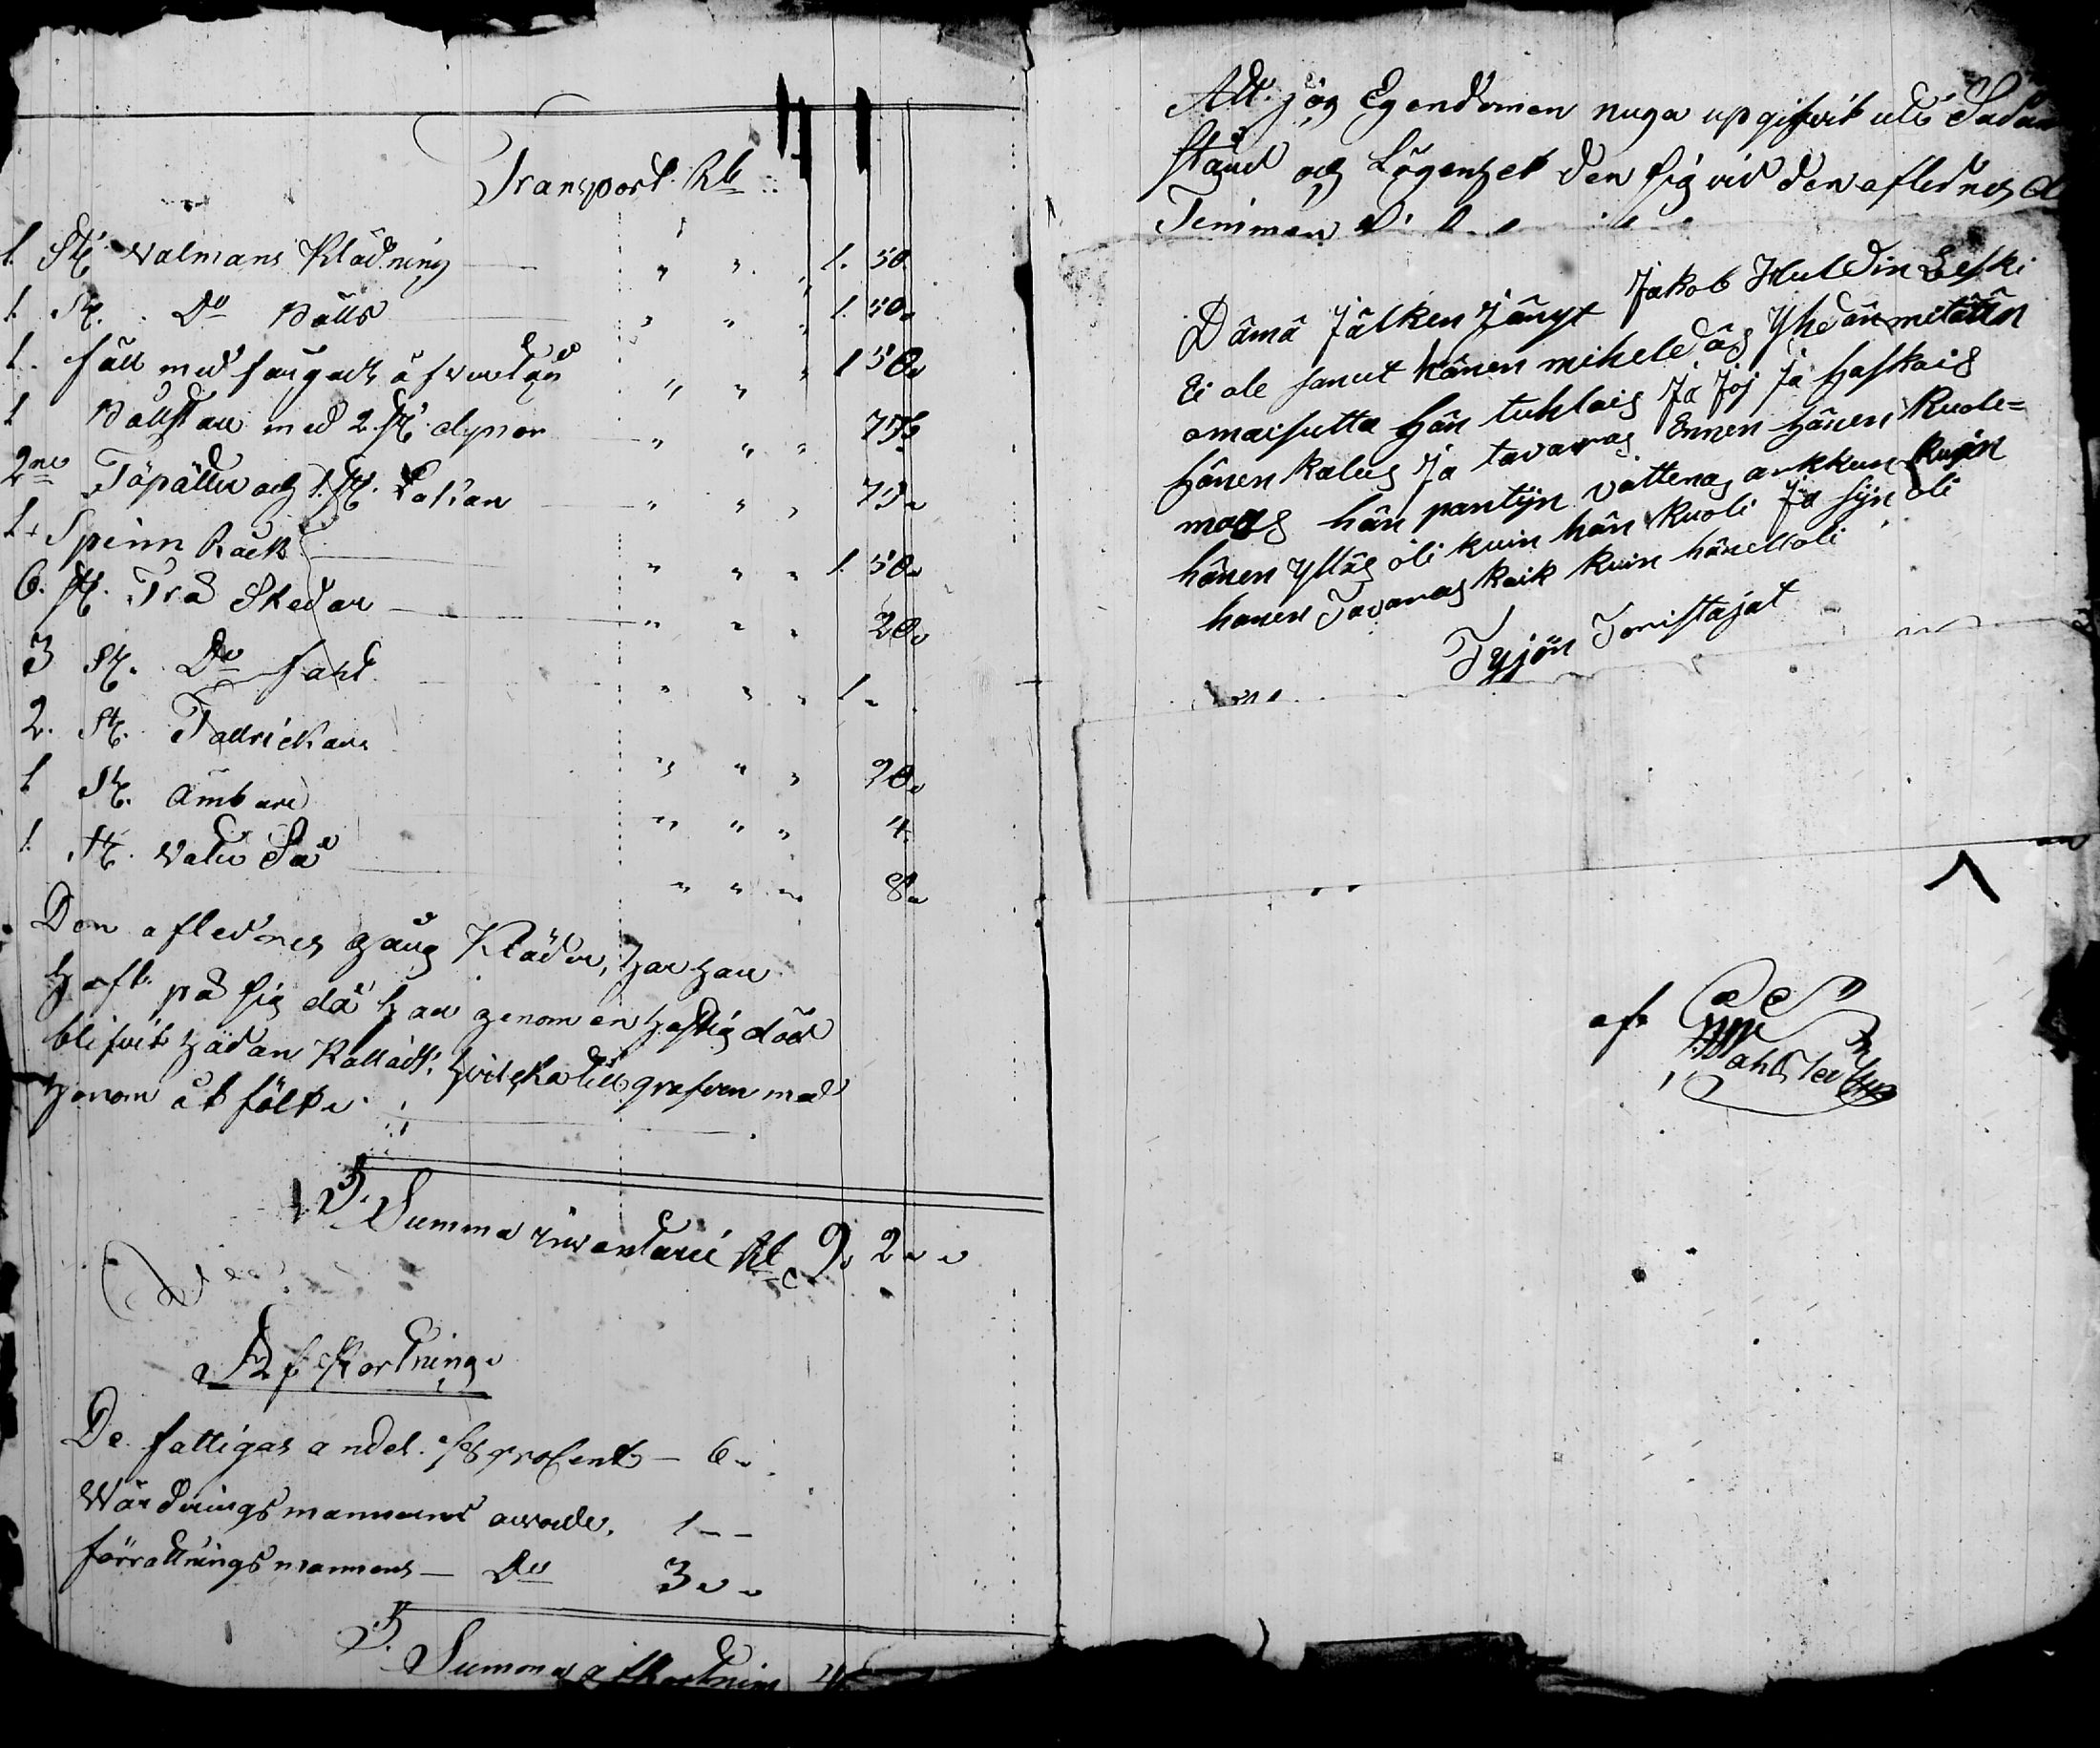 Transport Rb
1. St. Valmans Klädning " " " 1. 50.
1. St. Do Välls " " " 1. 50.
1. fäll med " " " 1 50.
1 Bållstar med 2. St. dynor " " " 75.
2ne och 1. St. Lakan " " " 75.
1. Spinn Råck " " " 1. 50.
6. St. Trä Skedar " " " 20.
3 St. Do fant. " " " 1 "
2. St. Tallrickar " " " 20.
1 St. Ämbare " " " 4.
1. St. Vatu Så " " " 8.
Den aflednes gång Kläder, har han
haft på sig då han genom en hastig död
blifvit hädan Kallad, hvilka till grafven med
honom åt följde.
Summa inventarii Rb 9. 2
Afkortning.
De fattigas andel procent — 6.
Wärderingsmannens arvode. 1 - -
förrättningsmannens — Do 3 "
Summa afkortning 4
Att jag Egendomen noga upgifvit uti Sådan
stånd och Lägenhet den sig vid den aflednes
Timman
Dämä Jälken Jäänyt Jakob Huldin Leski
Ei ole sanut hänen mieheldäs Yhdän mitään
omaisutta hän tuhlais Ja Joj Ja haskais
hänen kalus Ja tavaras Ennen hänen Kuole=
mas hän pantijn vattenas arkkun kuin
hänen Ylläs oli kuin hän Kuoli Ja sijn oli
hänen Tavaras kaik kuin hänell oli
Tyjön Toristajat
af.